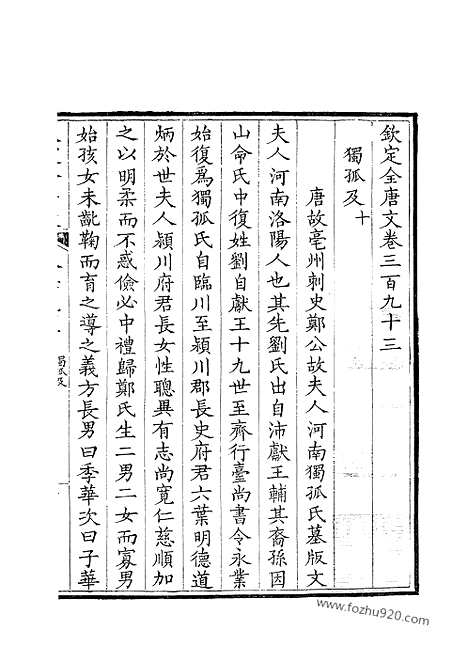 欽定全唐文卷三百九十三
獨孤及十
唐故亳州刺史鄭公故夫人河南獨孤氏墓版文
夫人河南洛陽人也其先劉氏出自沛獻王輔其裔孫因
山命氏中復姓劉自獻王十九世至齊行臺尚書令永業
始復爲獨孤氏自臨川至潁川郡長史府君六葉明德道
炳於世夫人潁川府君長女性聰異有志尚寬仁慈順加
之以明柔而不惑儉必中禮歸鄭氏生二男二女而寡男
始孩女未齔鞠而育之導之義方長男曰季華次曰子華
獨孤及
www.fozhu920.com